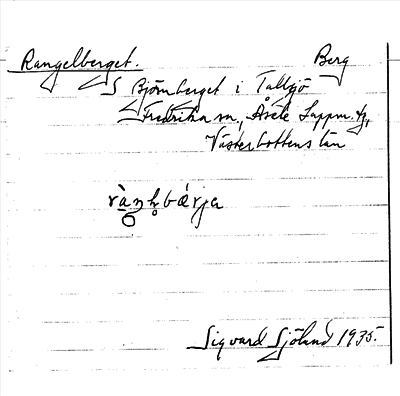 Rangelberget. Berg
S Björnberget i Tallsjö
Fredrika sn, Åsele Lappm. tg,
Västerbottens län
Sigvard Sjölund 1935.